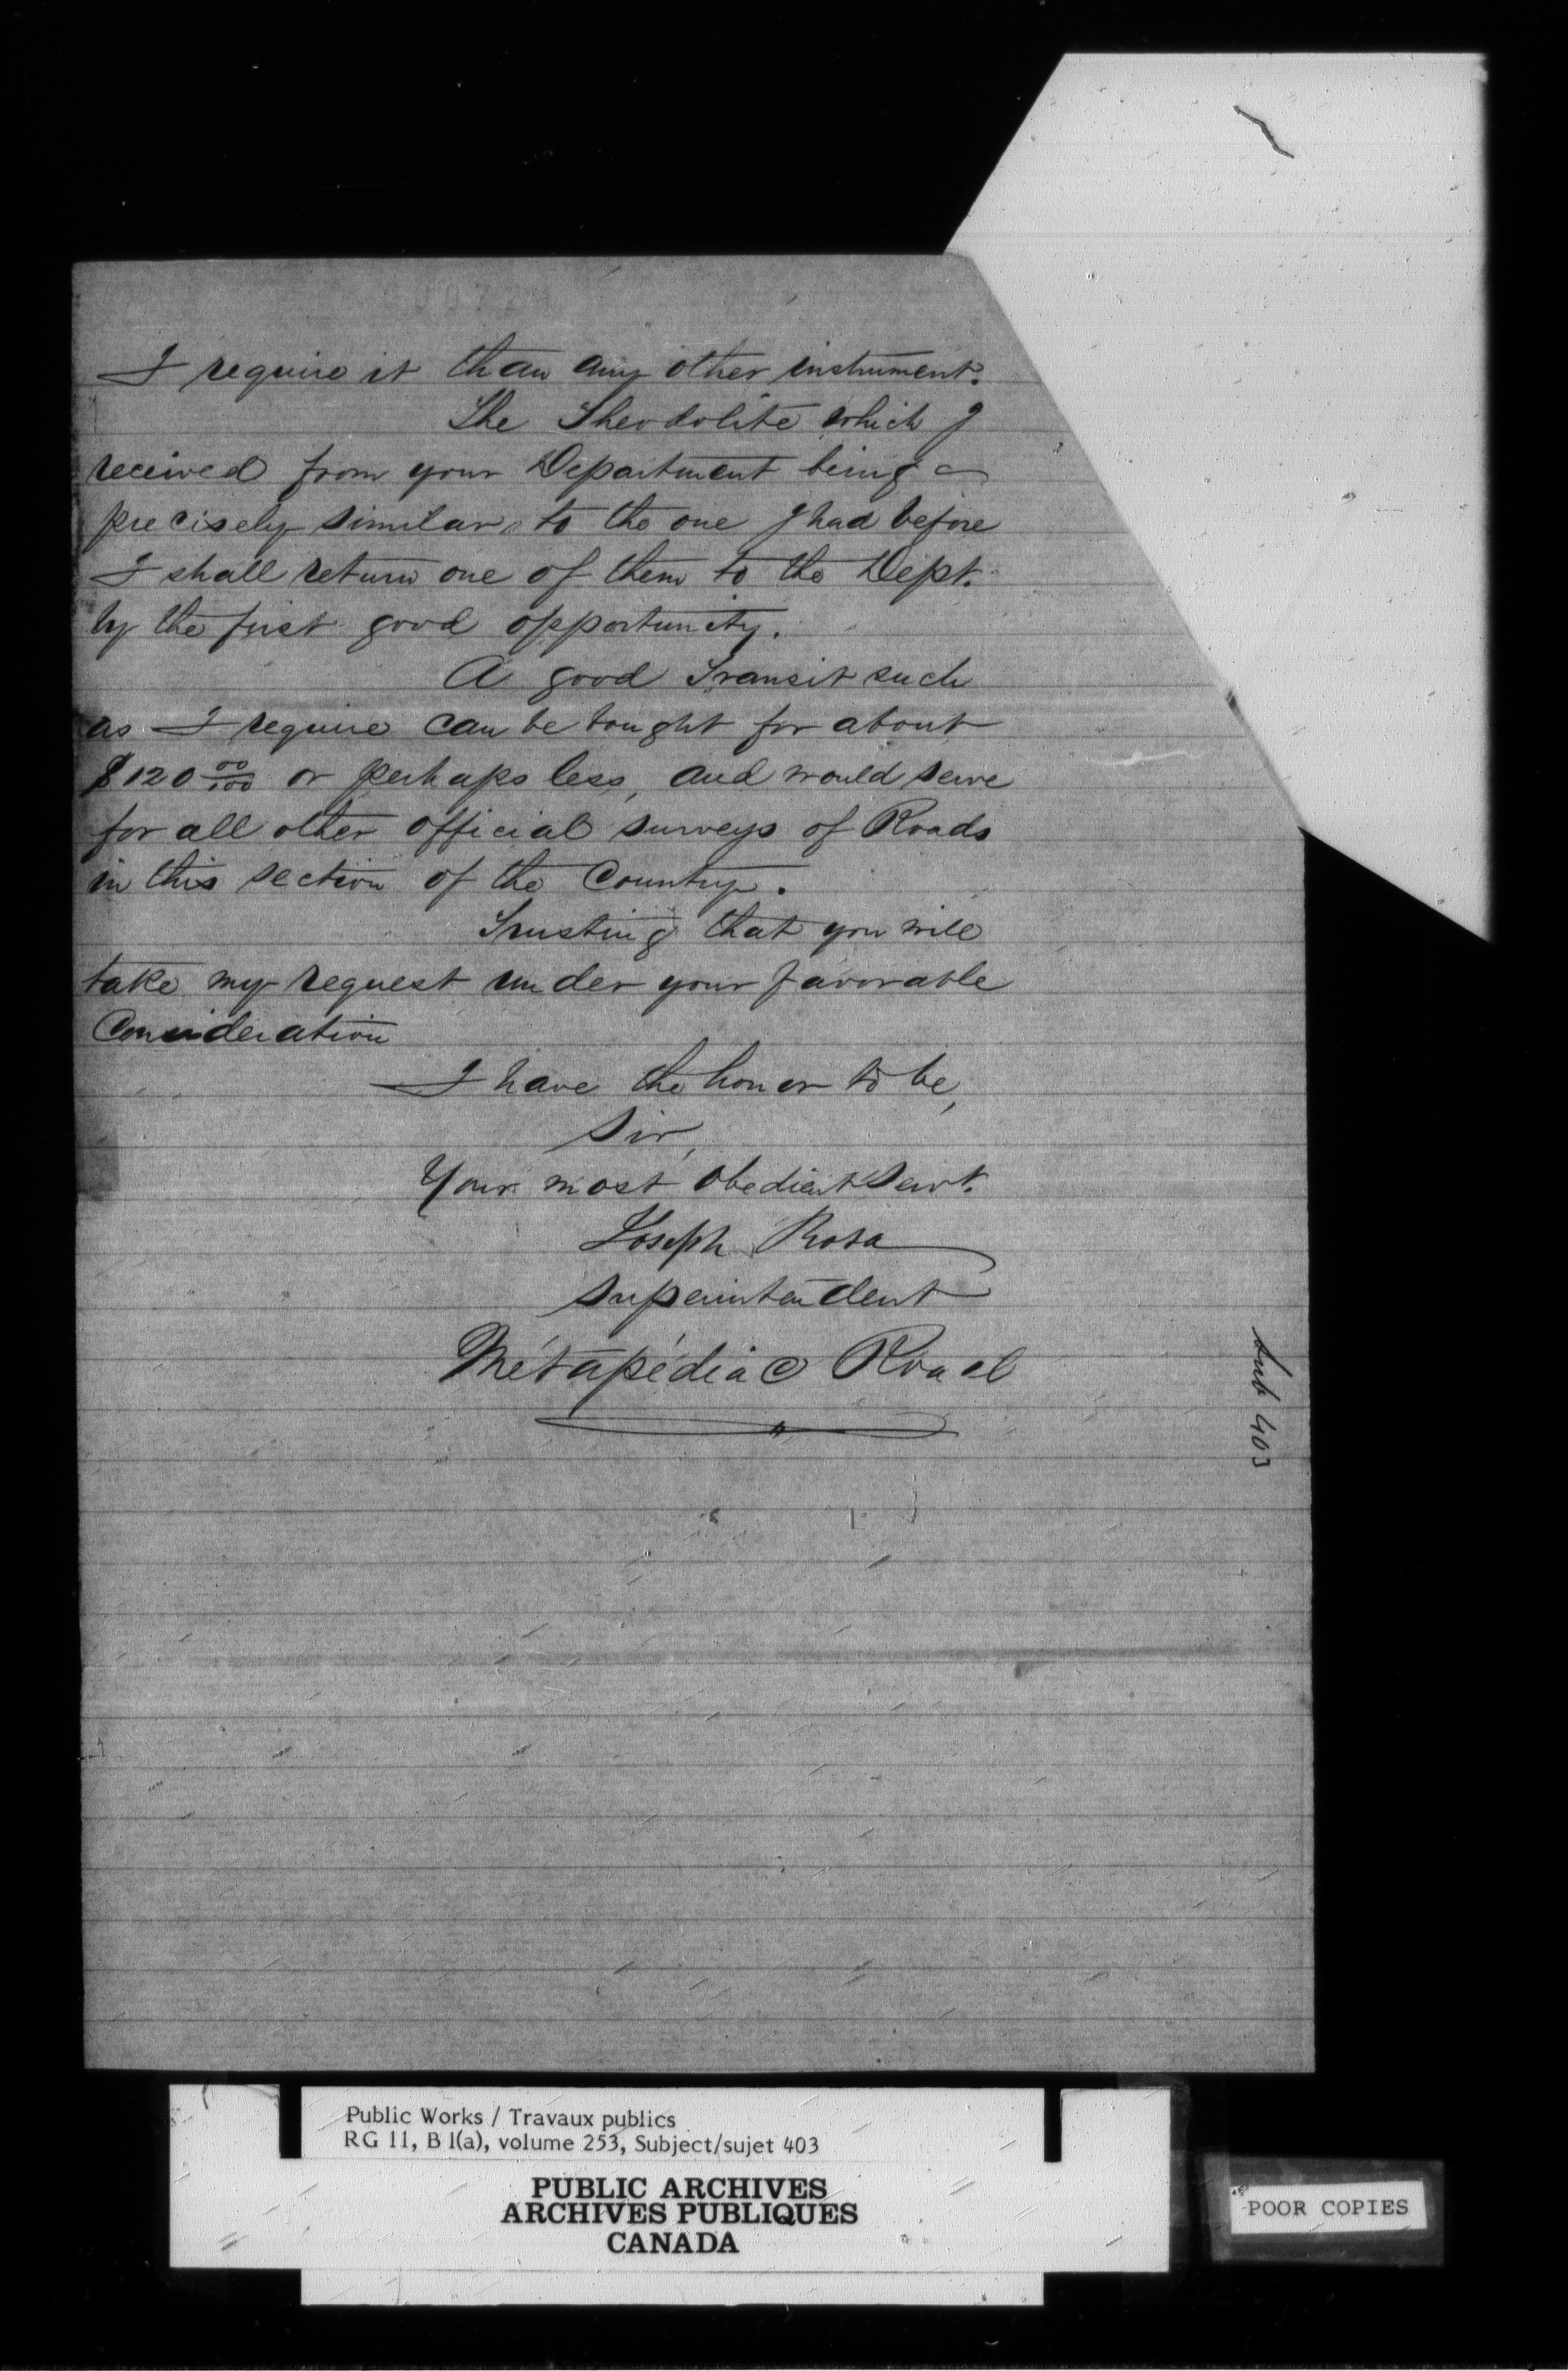 I require it than any other instrument.
The Theodolite which I
received from your Department being
precisely similar to the one I had before
I shall return one of them to the Dept.
by the first good opportunity.
A good Transit such
as I require can be bought for about
$120 00/100 or perhaps less, and would serve
for all other official surveys of Roads
in this section of the Country.
Trusting that you will
take my request under your favorable
Consideration
I have the honor to be,
Sir,
Your most obedient Servt.
Joseph Rosa
Superintendent
Métapédiac Road
Sub 403
Public Works / Travaux publics
RG 11, B 1(a), volume 253, Subject/sujet 403
PUBLIC ARCHIVES
ARCHIVES PUBLIQUES
CANADA
POOR COPIES